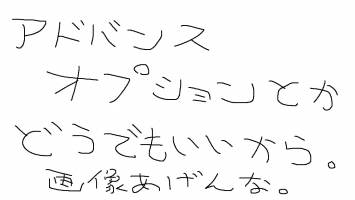 アドバンス
オプションとか
どうでもいいから。
画像あげんな。